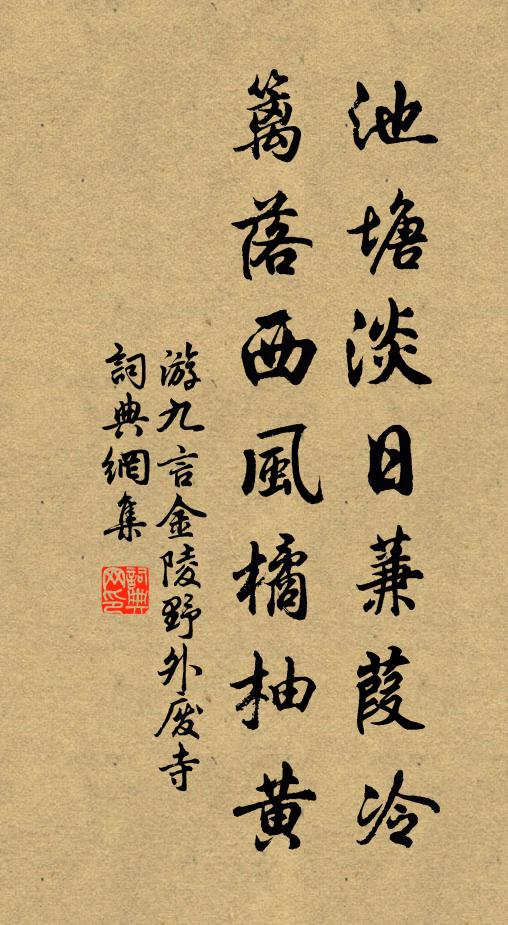 池塘淡日蒹葭冷
籬落西風橘柚黄
游九言金陵野外廢寺
詞典網集
詞典网印